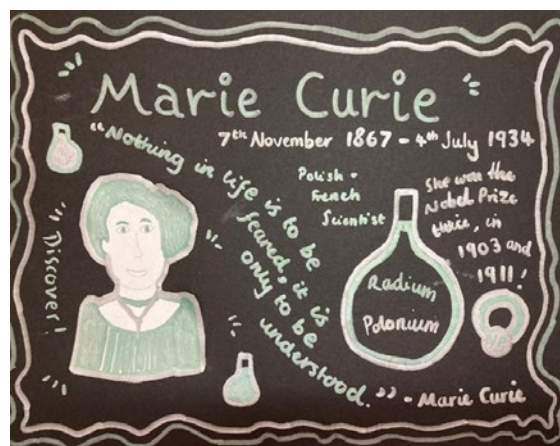 Marie Curie
7th November 1867 - 4th July 1934
"Nothing in life is to be
feared, it is
only to be
understood."
- Marie Curie
Discover!
Polish -
French
Scientist
She won the
Nobel Prize
twice, in
1903 and
1911!
Radium
Polonium